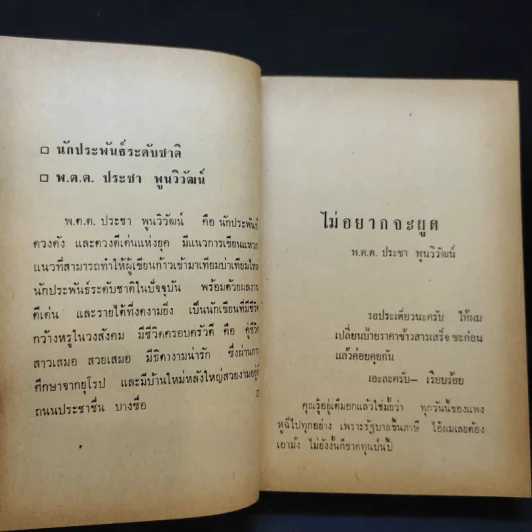 □ นักประพันธ์ระดับชาติ
□ พ.ต.ต. ประชา พูนวิวัฒน์
พ.ต.ต. ประชา พูนวิวัฒน์ คือ นักประพันธ์
ดวงดัง และดวงดีเด่นแห่งยุค มีแนวการเขียนแหวก
แนวที่สามารถทำให้ผู้เขียนก้าวเข้ามาเทียมบ่าเทียมไหล่
นักประพันธ์ระดับชาติในปัจจุบัน พร้อมด้วยผลงาน
ดีเด่น และรายได้ที่งดงามยิ่ง เป็นนักเขียนที่มีชีวิต
กว้างหรูในวงสังคม มีชีวิตครอบครัวดี คือ คู่ชีวิต
สาวเสมอ สวยเสมอ มีธิดางามน่ารัก ซึ่งผ่านการ
ศึกษาจากยุโรป และมีบ้านใหม่หลังใหญ่สวยงามอยู่
ถนนประชาชื่น บางซื่อ □
ไม่อยากจะขูด
พ.ต.ต. ประชา พูนวิวัฒน์
รอประเดี๋ยวนะครับ ให้ผม
เปลี่ยนป้ายราคาข้าวสารเสร็จ ซะก่อน
แล้วค่อยคุยกัน
เอะละครับ– เรียบร้อย
คุณรู้อยู่เต็มอกแล้วใช่มั้ยว่า ทุกวันนี้ของแพง
หูฉี่ไปทุกอย่าง เพราะรัฐบาลขึ้นภาษี ไอ้ผมเลยต้อง
เอามั่ง ไม่ยังงั้นก็ขาดทุนป่นปี้